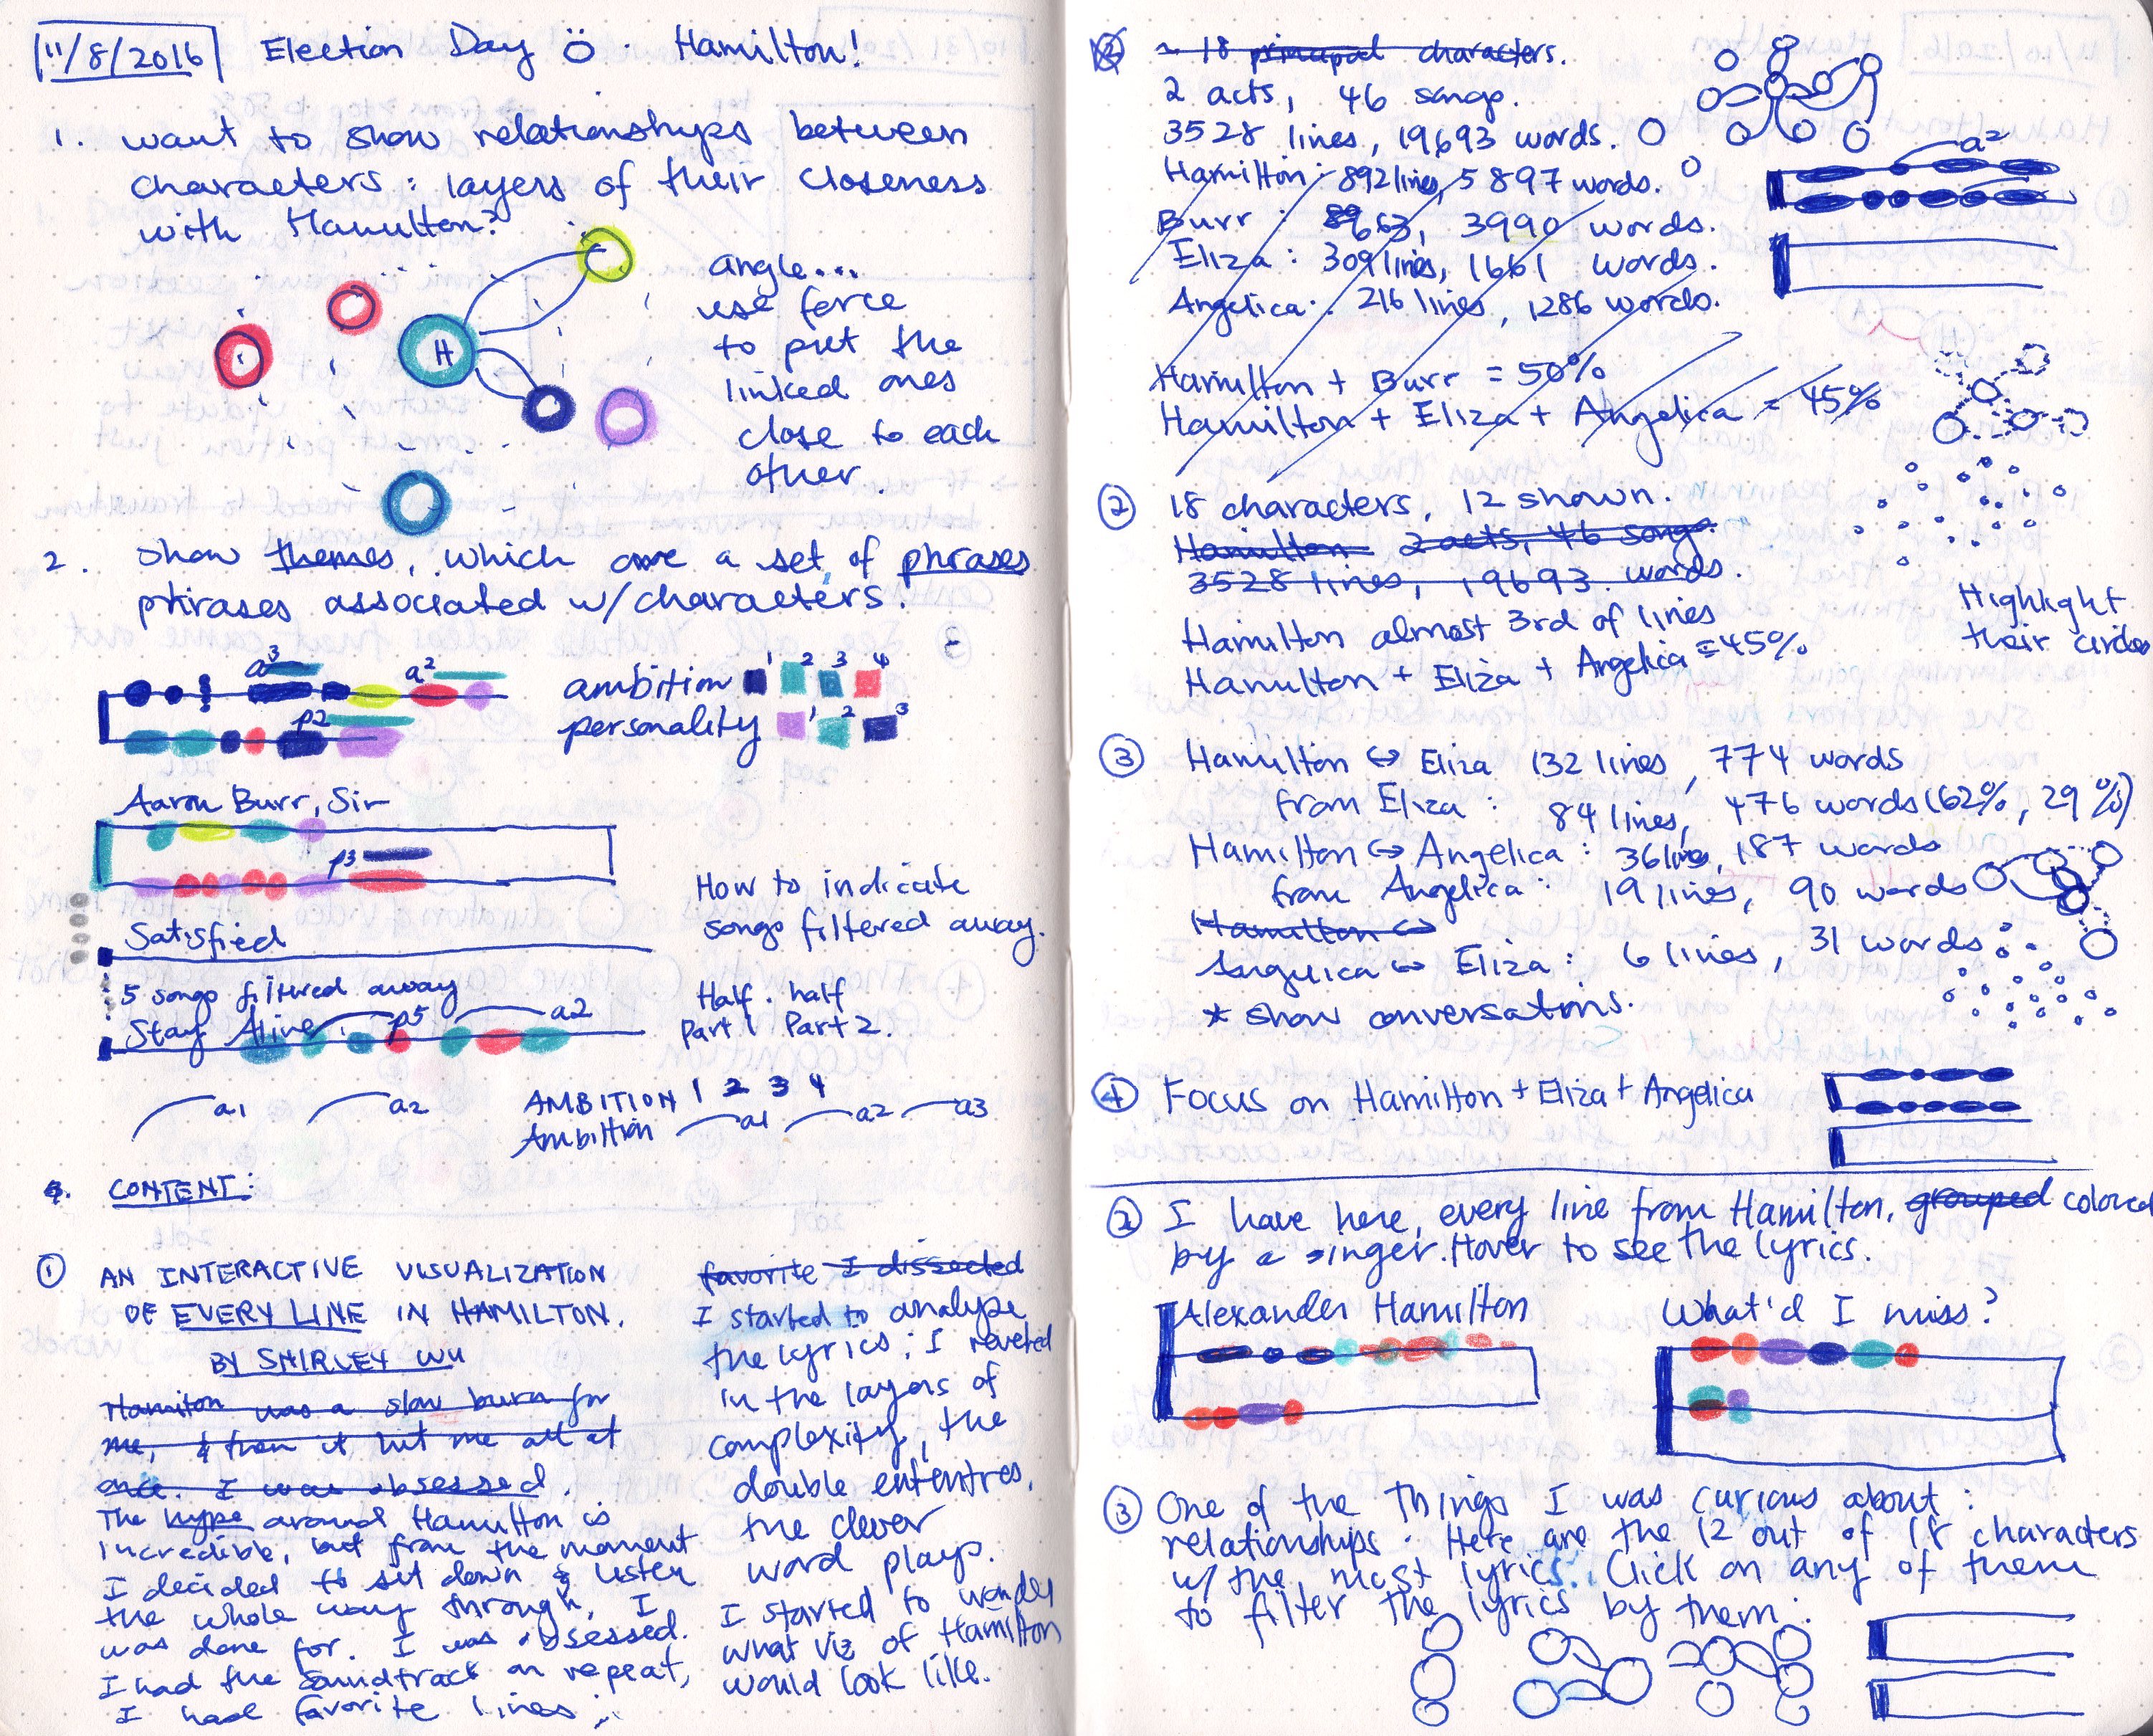 11/8/2016 Election Day Ö. Hamilton!
1. want to show relationships between
characters: layers of their closeness
with Hamilton?
H
angle...
use force
to put the
linked ones
close to each
other.
2. show themes, which are a set of phrases
phrases associated w/characters.
a3
a2
p2
ambition 1 2 3 4
personality 1 2 3
Aaron Burr, Sir
p3
Satisfied
How to indicate
songs filtered away.
5 songs filtered away
Stay Alive
p5
a2
Half. half
Part 1 Part 2.
a1 a2
AMBITION 1 2 3 4
Ambition a1 a2 a3
CONTENT:
① AN INTERACTIVE VISUALIZATION
OF EVERY LINE IN HAMILTON.
BY SHIRLEY WU
Hamilton was a slow burn for
me, & then it hit me all at
once. I was obsessed.
The hype around Hamilton is
incredible, but from the moment
I decided to sit down & listen
the whole way through, I
was done for. I was obsessed.
I had the soundtrack on repeat,
I had favorite lines;
favorite I dissected
I started to analyze
the lyrics; I reveled
in the layers of
complexity, the
double ententres,
the clever
word plays.
I started to wonder
what viz of Hamilton
would look like.
~ 18 principal characters.
2 acts, 46 songs.
3528 lines, 19693 words.
Hamilton: 892 lines, 5897 words.
Burr: 663, 3990 words.
Eliza: 309 lines, 1661 words.
Angelica: 216 lines, 1286 words.
a2
Hamilton + Burr = 50%
Hamilton + Eliza + Angelica = 45%
② 18 characters, 12 shown.
Hamilton 2 acts, 46 songs.
3528 lines, 19693 words.
Hamilton almost 3rd of lines
Hamilton + Eliza + Angelica = 45%
Highlight
their circles
③ Hamilton ↔ Eliza 132 lines, 774 words
from Eliza: 84 lines, 476 words (62%, 29%)
Hamilton ↔ Angelica: 36 lines, 187 words
from Angelica: 19 lines, 90 words
Hamilton ↔
Angelica ↔ Eliza: 6 lines, 31 words
* show conversations.
④ Focus on Hamilton + Eliza + Angelica
② I have here, every line from Hamilton, grouped colored
by a singer. Hover to see the lyrics.
Alexander Hamilton
What'd I miss?
③ One of the things I was curious about:
relationships. Here are the 12 out of 18 characters
w/ the most lyrics. Click on any of them
to filter the lyrics by them: